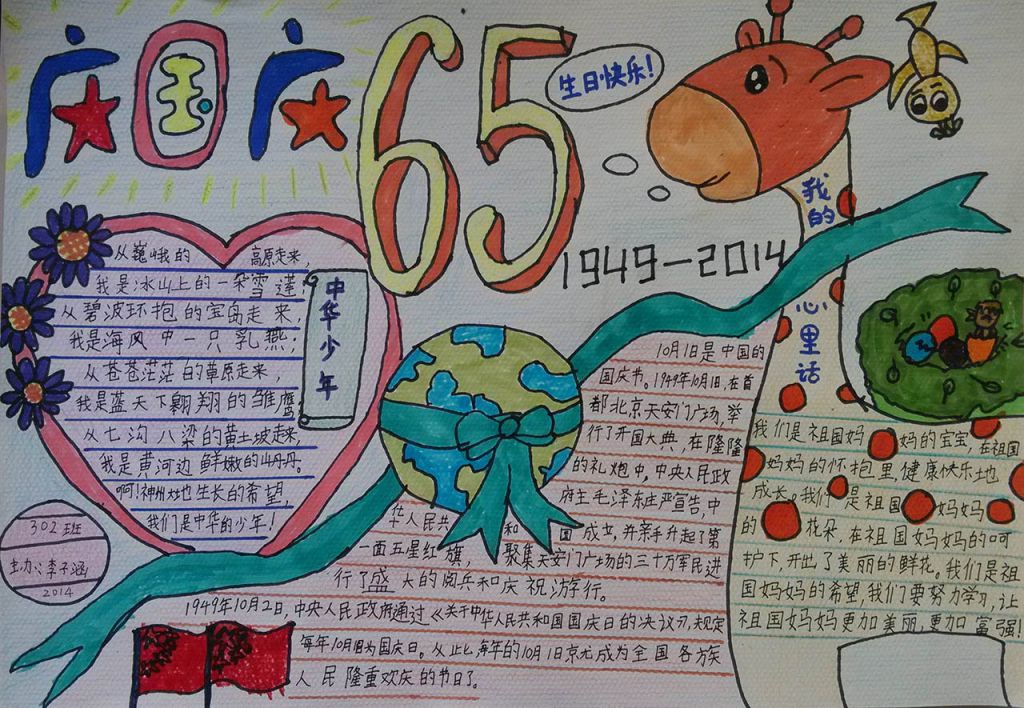 庆国庆
65
生日快乐!
1949-2014
我的心里话
中华少年
从巍峨的 高原走来,
我是冰山上的一朵雪莲;
从碧波环抱的宝岛走来,
我是海风中一只乳燕;
从苍苍茫茫的草原走来,
我是蓝天下翱翔的雏鹰
从七沟八梁的黄土坡走来,
我是黄河边鲜嫩的山丹丹。
啊!神州大地生长的希望,
我们是中华的少年!
302班
主办:李子涵
2014
10月1日是中国的
国庆节。1949年10月1日,在首
都北京天安门广场,举
行了开国大典,在隆隆
的礼炮中,中央人民政
府主毛泽东庄严宣告,中
华人民共 和 国成立,并亲手升起了第
一面五星红旗, 聚集天安门广场的三十万军民进
行了盛大的阅兵和庆祝游行。
1949年10月2日,中央人民政府通过《关于中华人民共和国国庆日的决议》,规定
每年10月1日为国庆日。从此每年的10月1日就成为全国各族
人民隆重欢庆的节日了。
我们是祖国妈妈的宝宝,在祖国
妈妈的怀抱里健康快乐地
成长。我们是祖国妈妈
的花朵,在祖国妈妈的呵
护下,开出了美丽的鲜花。我们是祖
国妈妈的希望,我们要努力学习,让
祖国妈妈更加美丽,更加富强!